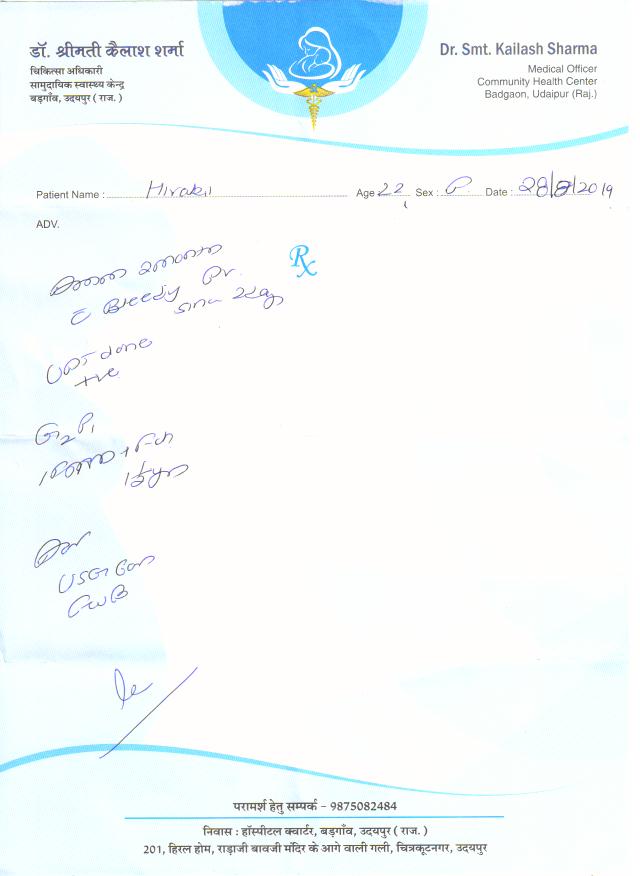 डॉ. श्रीमती कैलाश शर्मा
चिकित्सा अधिकारी
सामुदायिक स्वास्थ्य केन्द्र
बड़गाँव, उदयपुर ( राज. )
Dr. Smt. Kailash Sharma
Medical Officer
Community Health Center
Badgaon, Udaipur (Raj.)
Patient Name : Age 22 Sex : Date : 28/8/2019
ADV.
Rx
2 month
c Bleeding Pv.
since
UPT done
+ve
G2P1
USG for
FWB
परामर्श हेतु सम्पर्क – 9875082484
निवास : हॉस्पीटल क्वार्टर, बड़गाँव, उदयपुर ( राज. )
201, हिरल होम, राड़ाजी बावजी मंदिर के आगे वाली गली, चित्रकूटनगर, उदयपुर